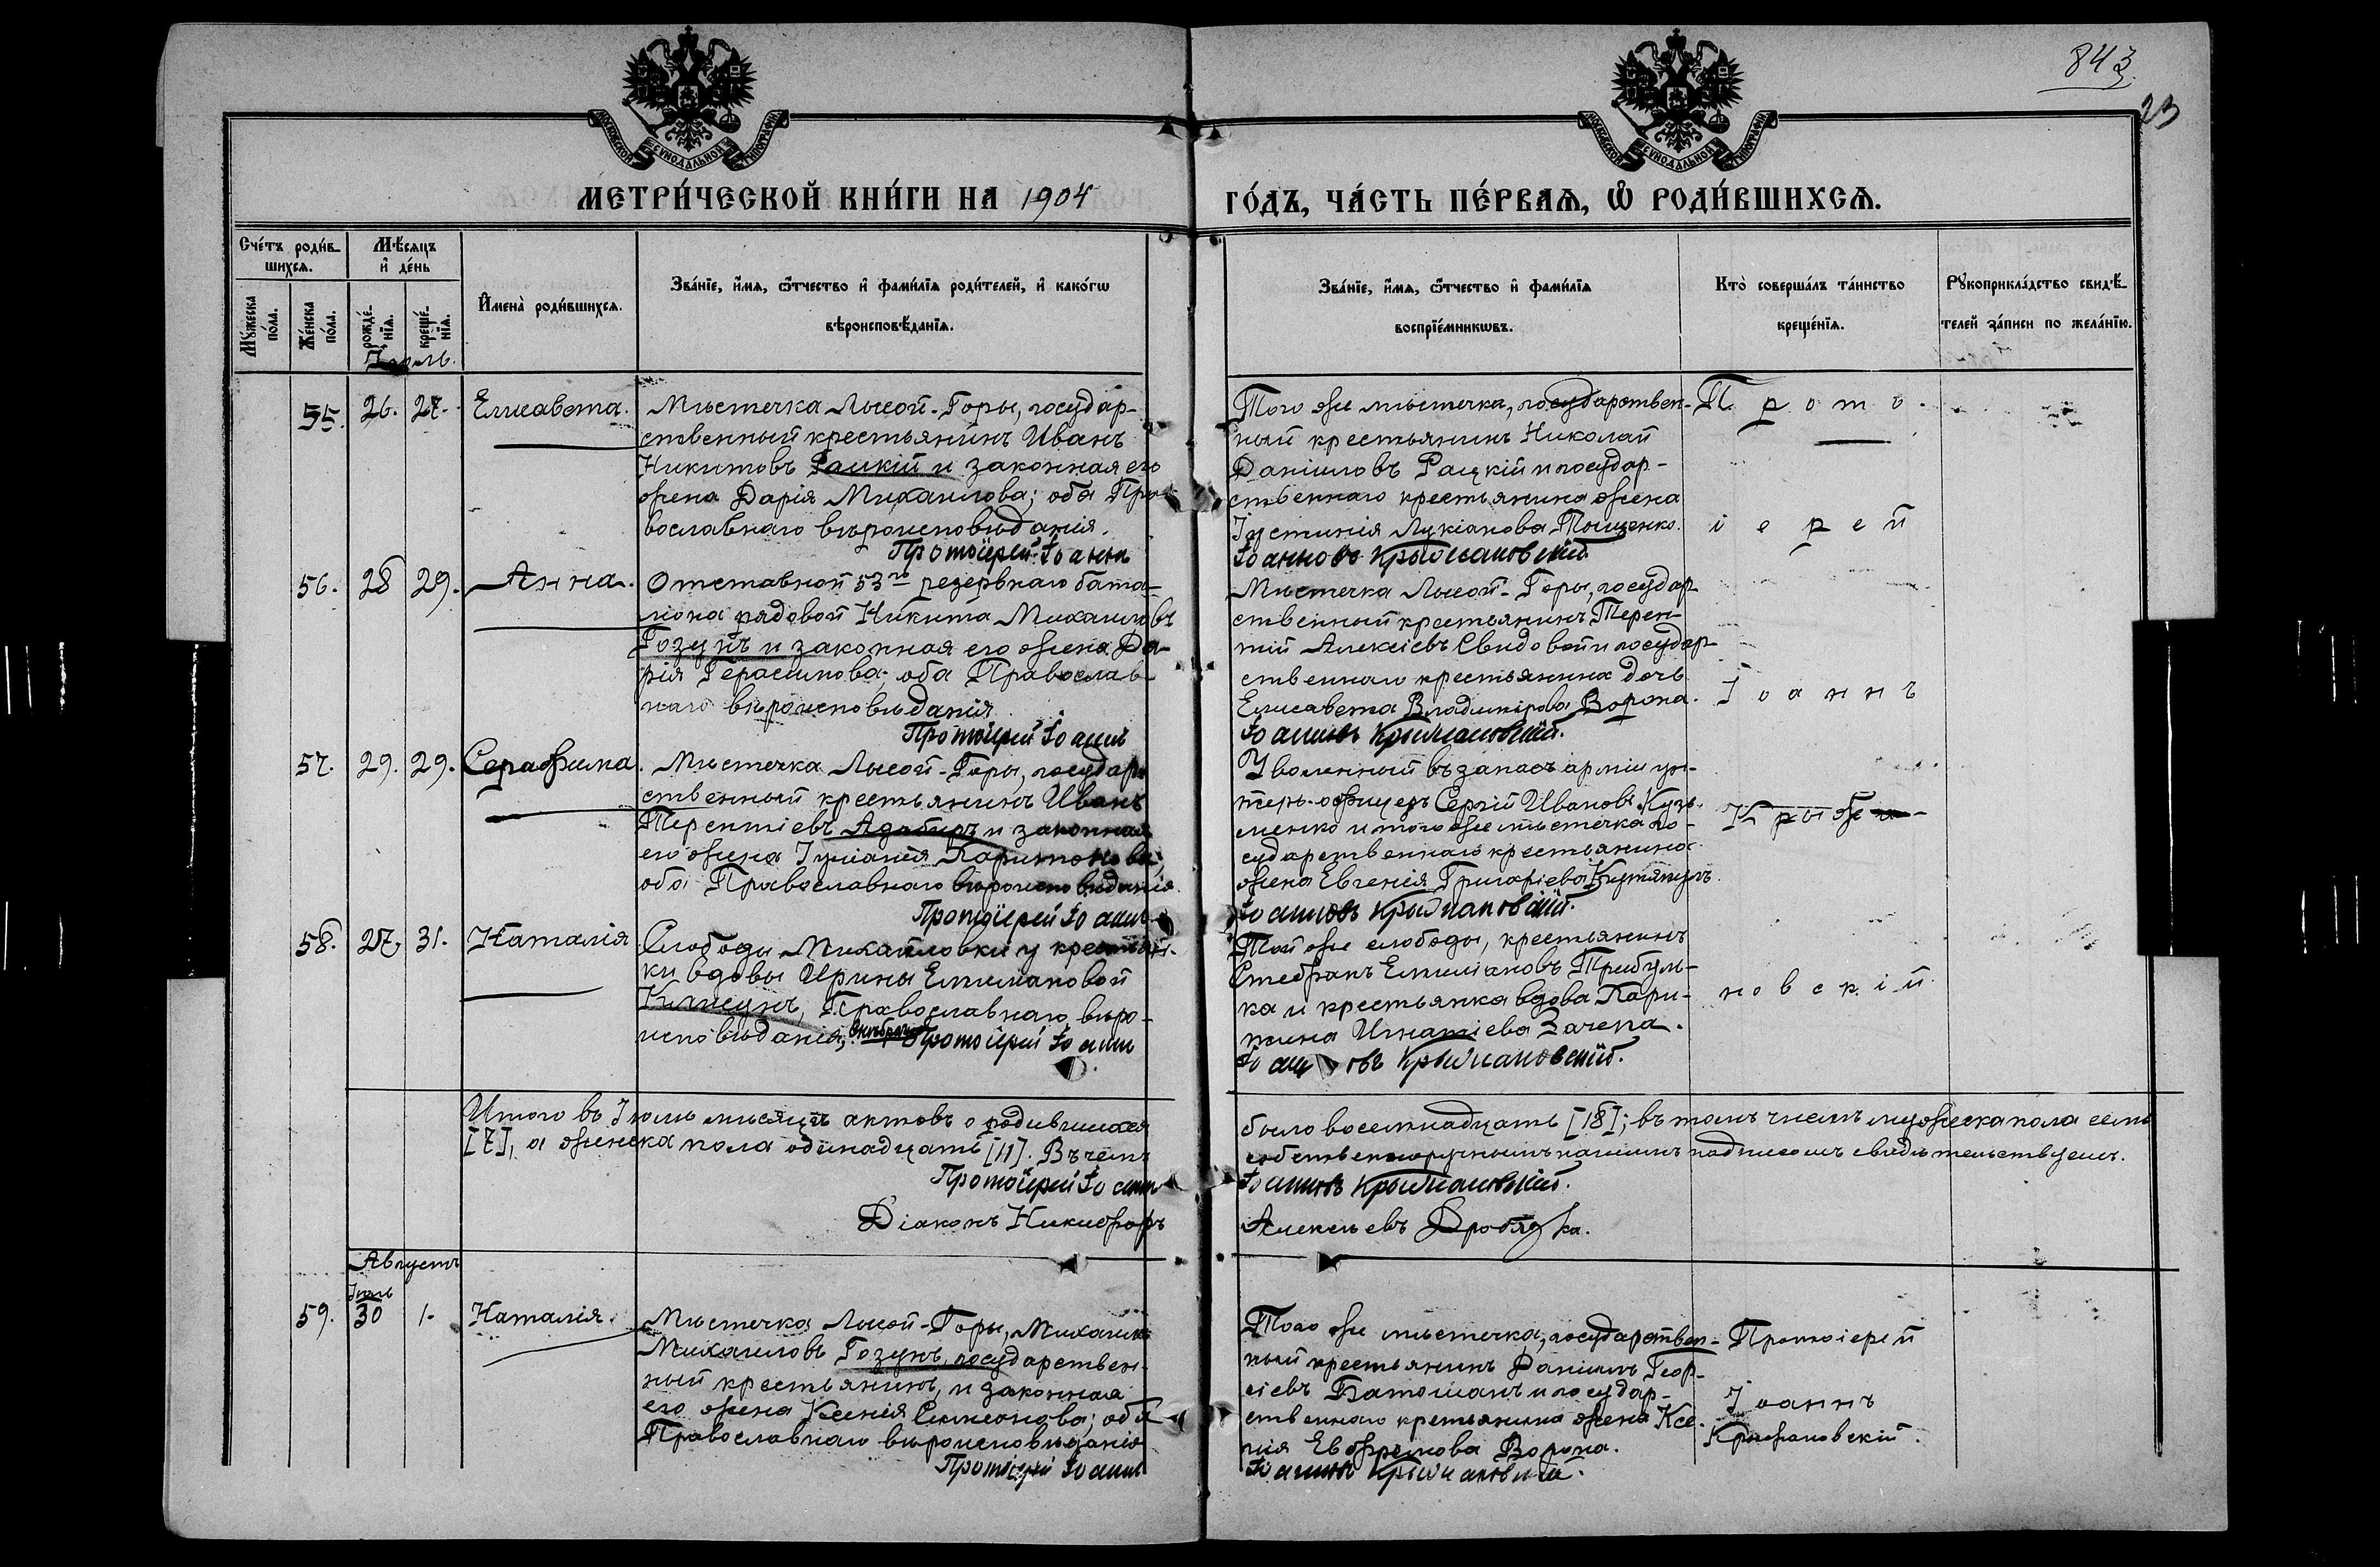 843
23
МОСКОВСКОЙ СѴНОДАЛЬНОЙ ТИПОГРАФІИ
МОСКОВСКОЙ СѴНОДАЛЬНОЙ ТИПОГРАФІИ
МЕТРИ́ЧЕСКОЙ КНИ́ГИ НА 1904
ГО́ДЪ, ЧА́СТЬ ПЕ́РВАѦ, Ѡ҆ РОДИ́ВШИХСѦ.
Сче́тъ роди́в-
шихсѧ.
Мѣ́сѧцъ
и҆ де́нь
Мꙋ́жеска
по́ла.
Же́нска
по́ла.
рожде́-
нїѧ.
креще́-
нїѧ.
И҆мена̀ роди́вшихсѧ.
Зва́нїе, и҆́мѧ, ѻ҆́тчество и҆ фами́лїѧ роди́телей, и҆ како́гѡ
вѣроисповѣ́данїѧ.
Зва́нїе, и҆́мѧ, ѻ҆́тчество и҆ фами́лїѧ
воспрїе́мникѡвъ.
Кто̀ соверша́лъ та́инство
креще́нїѧ.
Рꙋкоприкла́дство свидѣ́-
телей за́писи по жела́нїю.
Іюль.
55. 26. 27. Елисавета.
Мѣстечка Лысой-Горы, государ-
ственный крестьянинъ Иванъ
Никитовъ Рацкій и законная его
жена Дарія Михаилова; оба Пра-
вославнаго вѣроисповѣданія.
Протоіерей Іоанн
Того же мѣстечка, государствен-
ный крестьянинъ Николай
Даніиловъ Рацкій и государ-
ственнаго крестьянина жена
Іустинія Лукіанова Тищенко.
Іоанновъ Крыжановскій.
Прото-
іерей
56. 28 29. Анна.
Отставной 53го резервнаго бата-
ліона рядовой Никита Михаиловъ
Гозунъ и законная его жена Да-
рія Герасимова; оба Православ-
наго вѣроисповѣданія
Протоіерей Іоаннъ
Мѣстечка Лысой-Горы, государ-
ственный крестьянинъ Терен-
тій Алексіевъ Свидовой и государ-
ственнаго крестьянина дочь
Елисавета Владимірова Ворона.
Іоанновъ Крыжановскій.
Іоаннъ
57. 29. 29. Серафима.
Мѣстечка Лысой-Горы, государ-
ственный крестьянинъ Иванъ
Терентіевъ Адабиръ и законная
его жена Іуліанія Харитонова;
оба Православнаго вѣроисповѣданія
Протоіерей Іоанн
Уволенный въ запасъ арміи ун-
теръ-офицеръ Сергій Ивановъ Кузь-
менко и того же мѣстечка го-
сударственнаго крестьянина
жена Евгенія Григоріева
Іоанновъ Крыжановскій.
Крыжа-
58. 27. 31. Наталія
Слободы Михайловки у крестьян-
ки вдовы Ирины Емиліановой
Православнаго вѣро-
исповѣданія, Протоіерей Іоанн
Той же слободы, крестьянинъ
Стефанъ Емиліановъ Трибуль-
ка и крестьянка вдова Хари-
тина Игнатіева Зачепа.
Іоанновъ Крыжановскій.
новскій
Итого въ Іюль мѣсяцѣ актовъ о родившихся
было восемнадцать [18]; въ томъ числѣ мужеска пола семь
[7], а женска пола одинадцать [11]. Въ чемъ
собственноручнымъ нашимъ подписомъ свидѣтельствуемъ.
Протоіерей Іоанн
Іоанновъ Крыжановскій.
Діаконъ Никифоръ
Алексѣевъ Дробязка.
Августъ
Іюль
59. 30 1. Наталія.
Мѣстечка Лысой-Горы, Михаилъ
Михаиловъ Гозунъ, государствен-
ный крестьянинъ, и законная
его жена Ксенія Симеонова; оба
Православнаго вѣроисповѣданія
Протоіерей Іоанн
Того же мѣстечка, государствен-
ный крестьянинъ Даніилъ Геор-
гіевъ Батошанъ и государ-
ственнаго крестьянина жена Ксе-
нія Евфремова Ворона.
Іоанновъ Крыжановскій.
Протоіерей
Іоаннъ
Крыжановскій.